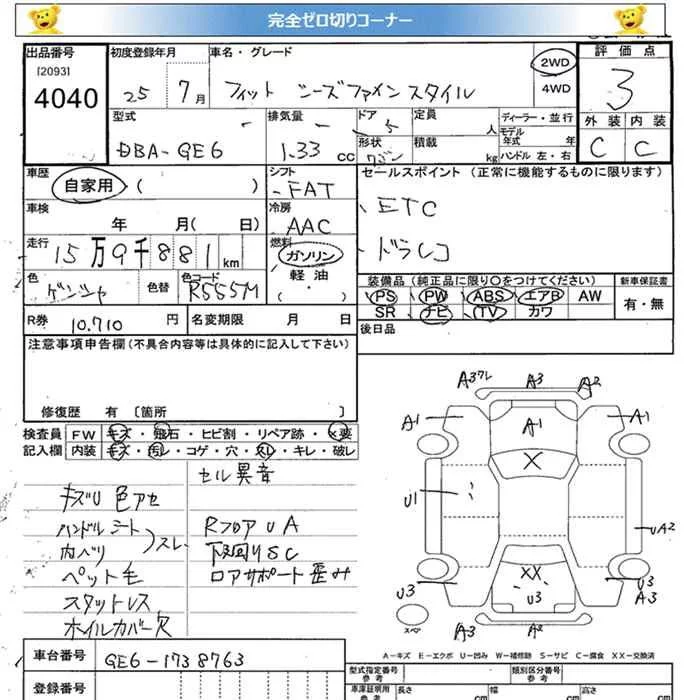 完全ゼロ切りコーナー
出品番号
[2093]
4040
初度登録年月
25 7 月
車名・グレード
フィット シーズファイン スタイル
2WD
4WD
評価点
3
外装 内装
C C
型式
DBA-GE6
排気量
1.33 cc
ドア
5
形状
定員
人
積載
kg
ディーラー・並行
モデル年式 年
ハンドル 左・右
車歴
自家用 ( )
シフト
FAT
セールスポイント (正常に機能するものに限ります)
ETC
ドラレコ
車検
年 月( 日)
冷房
AAC
走行
15万9千881km
燃料
ガソリン
軽油
( ・ )
色
色替
色コード
R555M
装備品 (純正品に限り○をつけてください)
PS PW ABS エアB AW
SR ナビ TV カワ
新車保証書
有・無
R券 10.710 円
名変期限 月 日
後日品
注意事項申告欄(不具合内容等は具体的に記入して下さい)
修復歴 有 〔箇所 〕
検査員記入欄
FW キズ・飛石・ヒビ割・リペア跡・×要
内装 キズ・汚レ・コゲ・穴・スレ・キレ・破レ
セル異音
キズU 色アセ
ハンドル シート
内ベリ
スレ
ペット毛
スタットレス
ホイルカバー欠
RフロアUA
下回りSC
ロアサポート歪み
A3 A2
A1 A1 A1
X
U1
UA2
XX
U3
U3
U3
A3
スペア
A3 A2
A-キズ E-エクボ U-凹み W-補修跡 S-サビ C-腐食 XX-交換済
車台番号
GE6-1738763
登録番号
型式指定番号
参考
類別区分番号
参考
車庫証明用
参考
長さ cm
幅 cm
高さ cm